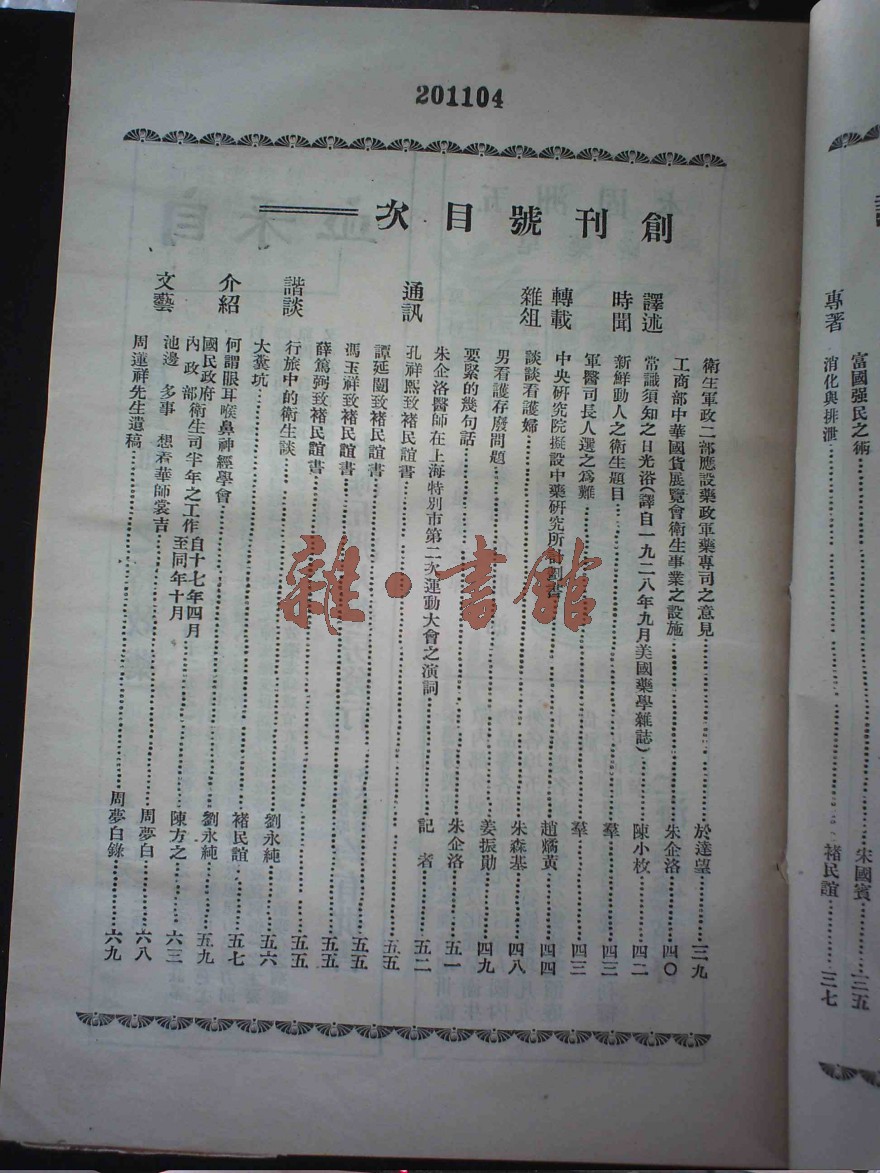 201104
創刊號目次
富國强民之術 宋國賓 三五
專著 消化與排泄 褚民誼 三七
衛生軍政二部應設藥政軍藥專司之意見 於達望 三九
工商部中華國貨展覽會衛生事業之設施 朱企洛 四〇
譯述 常識須知之日光浴(譯自一九二八年九月美國藥學雜誌) 陳小枚 四二
時聞 新鮮動人之衛生題目 羣 四三
軍醫司長人選之爲難 羣 四三
轉載 中央研究院擬設中藥研究所計劃書 趙燏黃 四四
雜俎 談談看護婦 朱森基 四八
男看護存廢問題 姜振勛 四九
要緊的幾句話 朱企洛 五一
朱企洛醫師在上海特別市第二次運動大會之演詞 記者 五二
通訊 孔祥熙致褚民誼書 五五
譚延闓致褚民誼書 五五
馮玉祥致褚民誼書 五五
薛篤弼致褚民誼書 五五
諧談 行旅中的衛生談 劉永純 五六
大糞坑 褚民誼 五七
介紹 何謂眼耳喉鼻神經學會 劉永純 五九
國民政府內政部衛生司半年之工作 自十七年四月至同年十月 陳方之 六三
文藝 池邊 多事 想着華師裳吉 周夢白 六八
周蓮祥先生遺稿 周夢白錄 六九
雜·書館